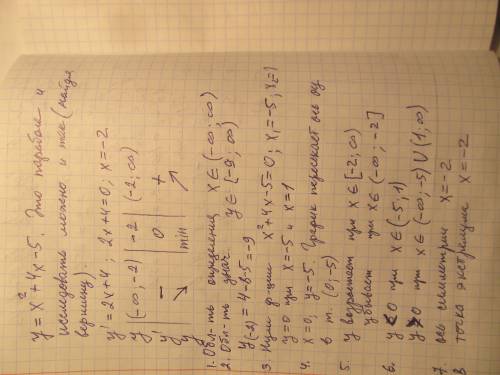 y = x² + 4x - 5. Это парабола и
исследовать можно и так (найдя
вершину).
y' = 2x + 4 ; 2x + 4 = 0 ; x = -2
y' (-∞; -2) | -2 | (-2; ∞)
y' − | 0 | +
y ↘ | min | ↗
1. Обл-ть определения x ∈ (-∞; ∞)
2. Обл-ть знач. y ∈ [-9; ∞)
y(-2) = 4 - 8 - 5 = -9
3. Нули ф-ции x² + 4x - 5 = 0 ; x₁ = -5 ; x₂ = 1
y = 0 при x = -5 и x = 1
4. x = 0 ; y = -5. График пересекает ось оу
в т. (0; -5)
5. y возрастает при x ∈ [-2; ∞)
убывает при x ∈ (-∞; -2]
6. y < 0 при x ∈ (-5; 1)
y > 0 при x ∈ (-∞; -5) ∪ (1; ∞)
7. ось симметрии x = -2
8 точка экстремума x = -2